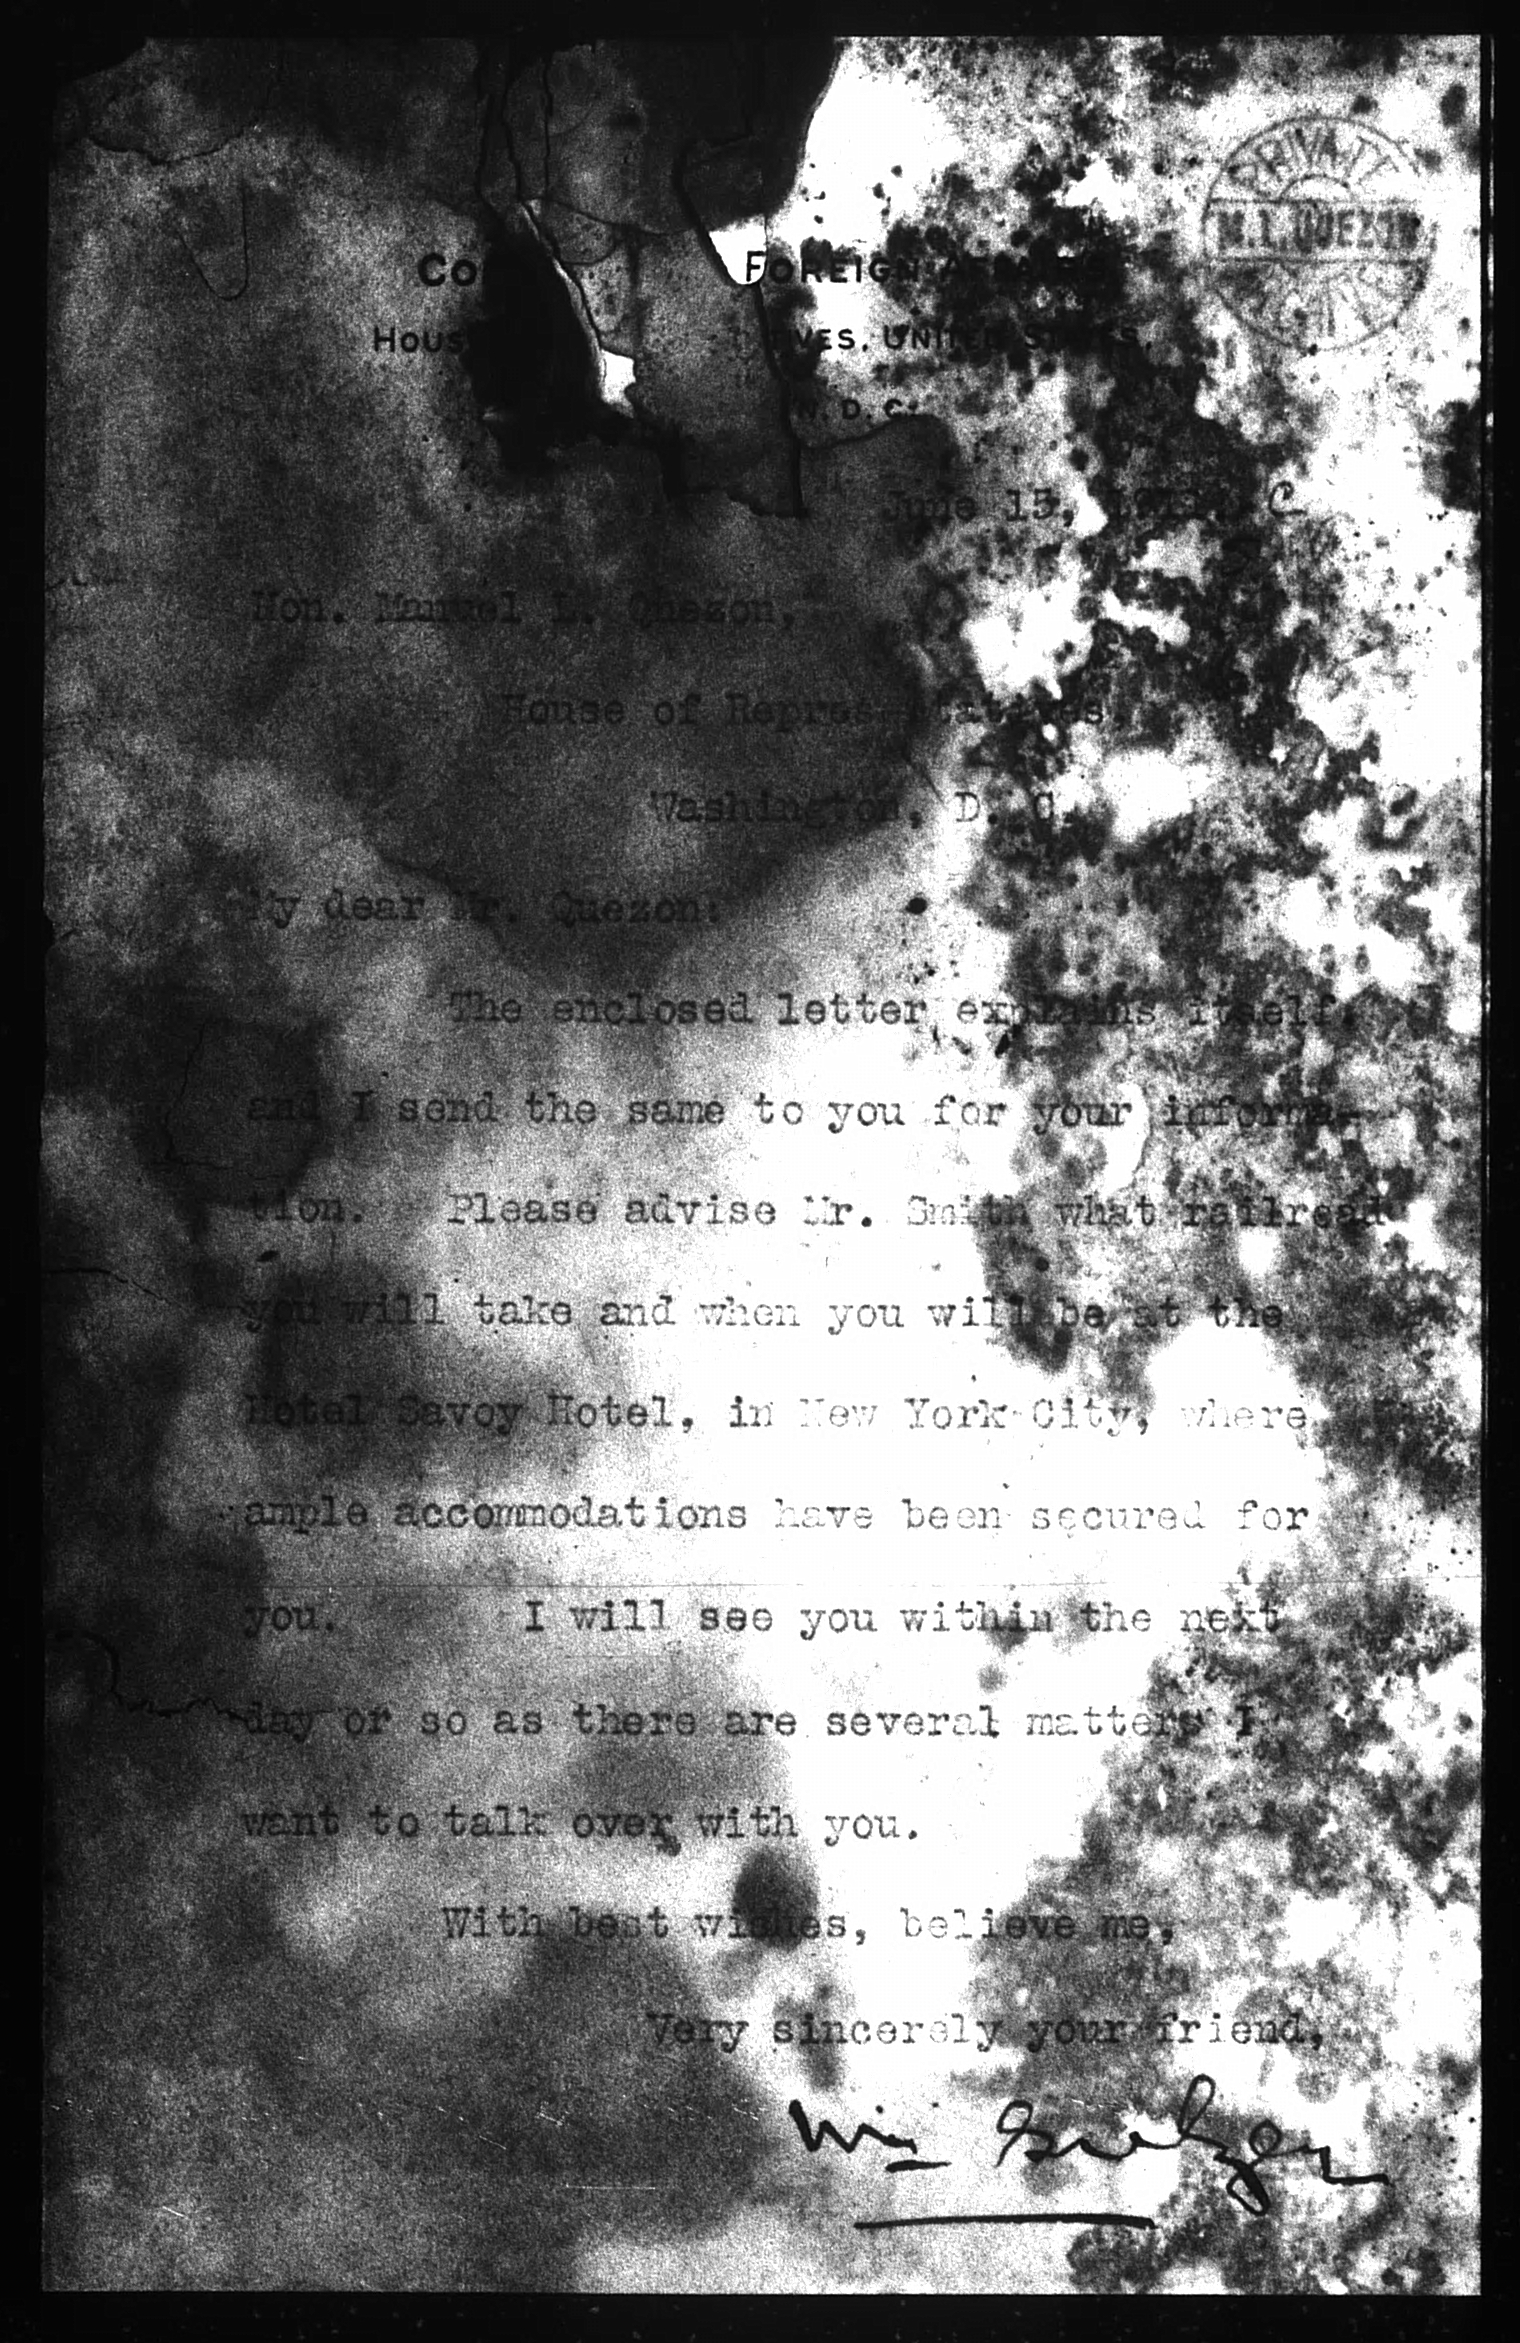 PRIVATE
M. L. QUEZON
Co FOREIGN AFFAIRS
HOUS IVES, UNITED STATES,
N, D. C.
June 15,
Hon. Manuel L. Quezon,
House of Representatives,
Washington, D. C.
My dear Mr. Quezon:
The enclosed letter explains itself,
and I send the same to you for your informa-
tion. Please advise Mr. Smith what railroad
you will take and when you will be at the
Hotel Savoy Hotel, in New York City, where
ample accommodations have been secured for
you. I will see you within the next
day or so as there are several matters I
want to talk over with you.
With best wishes, believe me,
Very sincerely your friend,